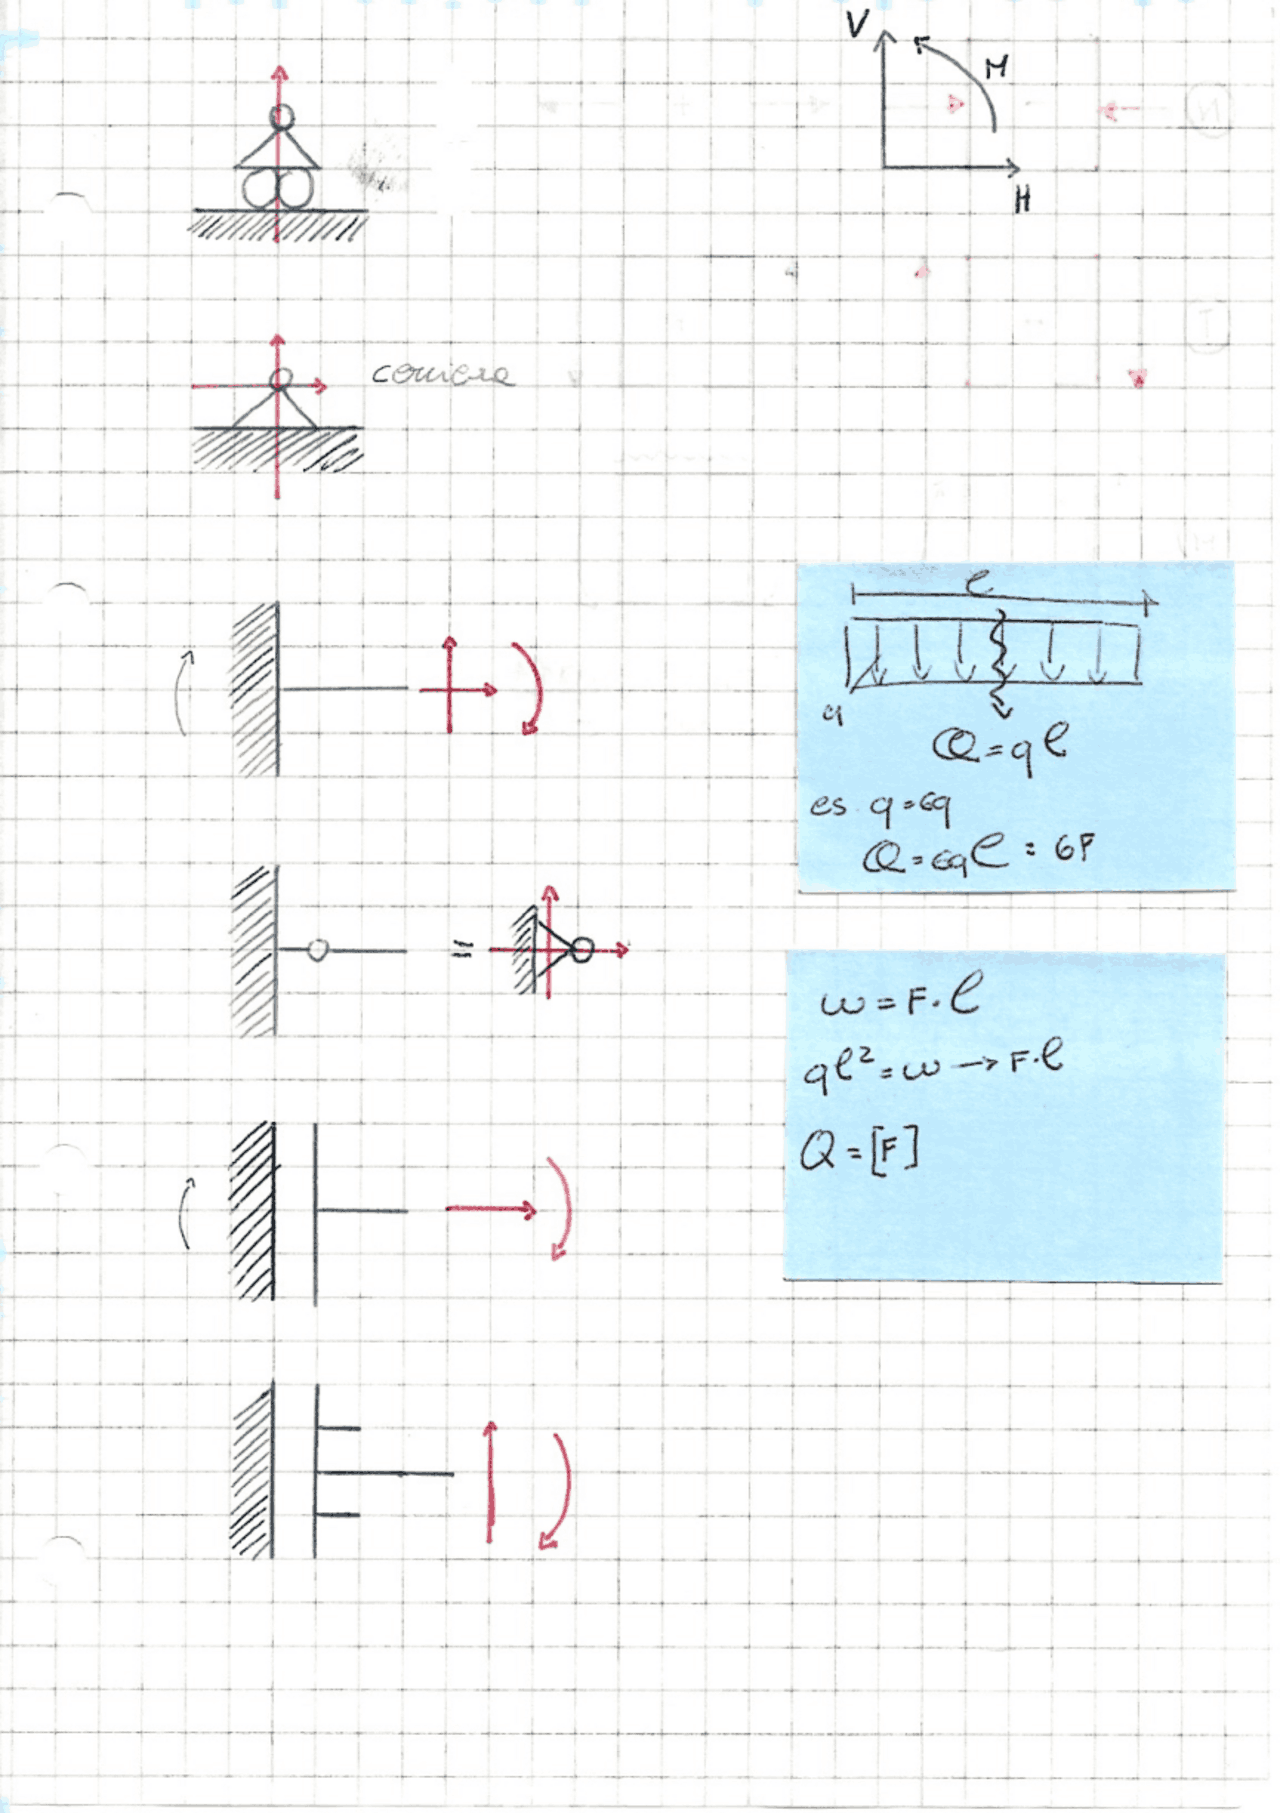 V
M
H
cerniera
l
q
Q = ql
es. q = 6q
Q = 6ql = 6F
w = F·l
ql² = w → F·l
Q = [F]